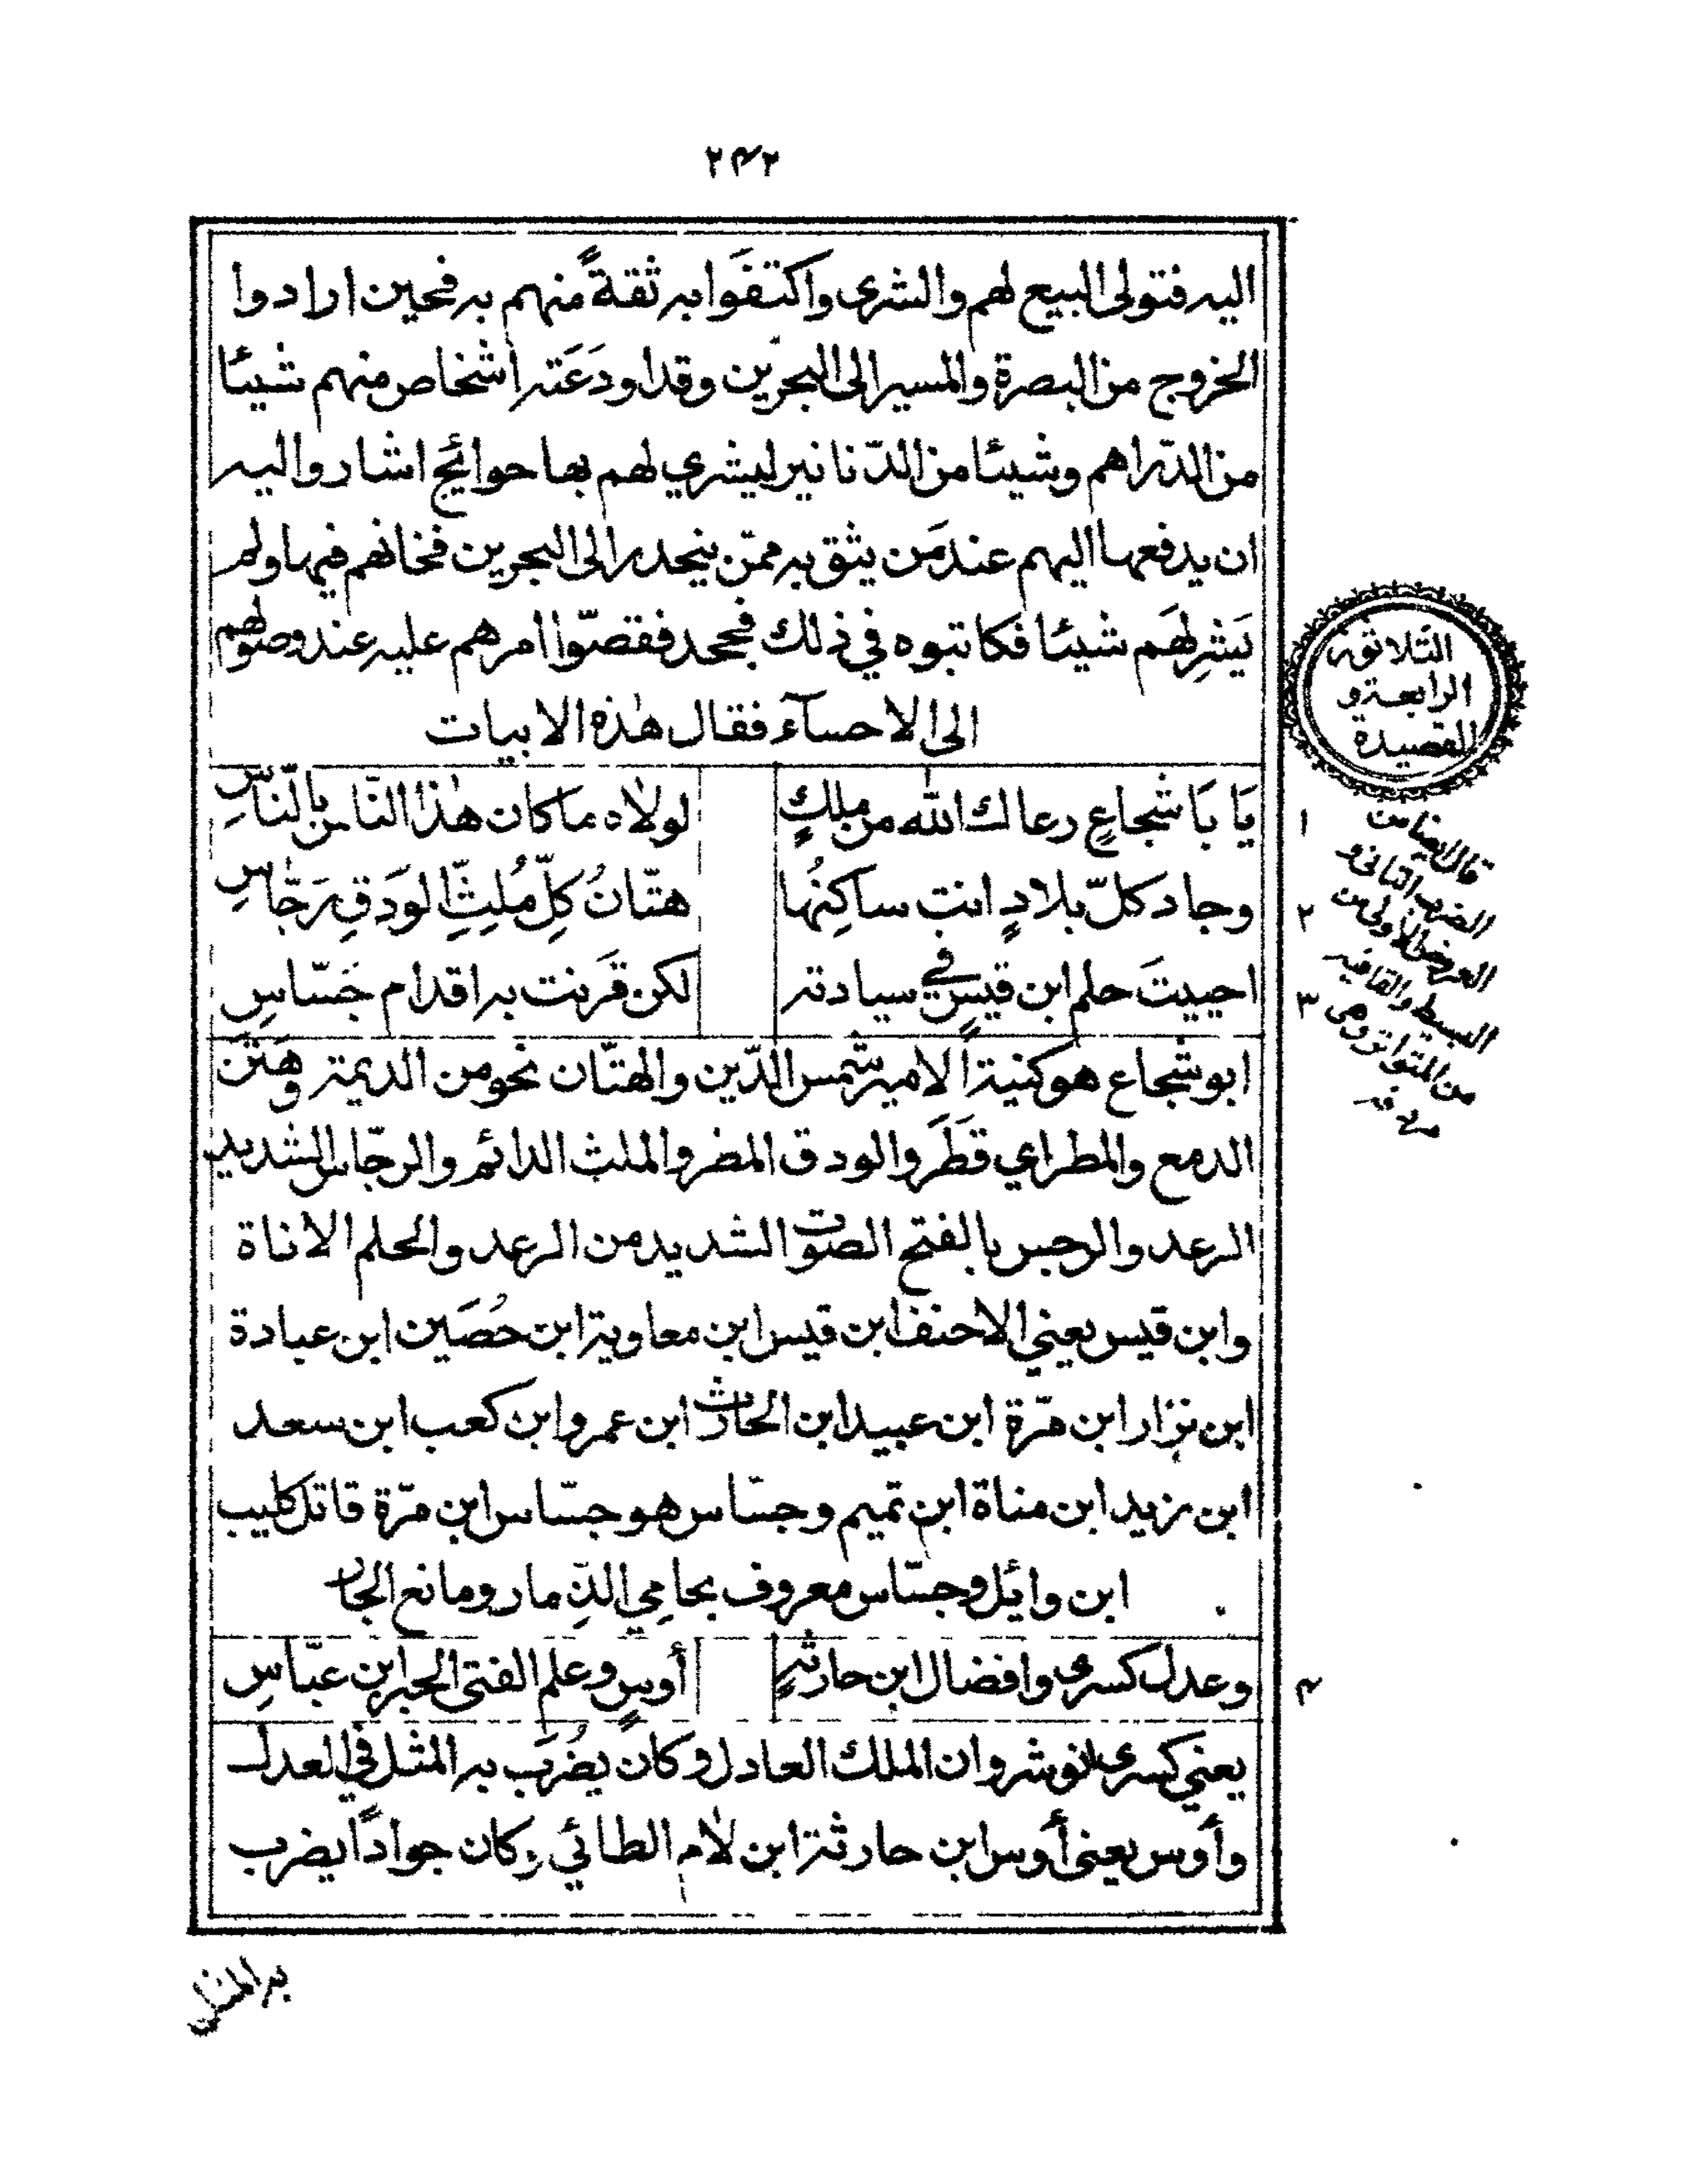 ٢٤٢
اليه فتولى البيع لهم والشرى واكتفَوا به ثقةً منهم به فحين ارادوا
الخروج من البصرة والمسير الى البحرين وقد اودَعَته اشخاص منهم شيئا
من الدّراهم وشيئا من الدّنانير ليشري لهم بها حوائج اشاروا اليه
ان يدفعها اليهم عند مَن يثق به ممّن ينحدر الى البحرين فخانهم فيها ولم
يَشرِ لهَم شيئا فكاتبوه في ذلك فجحد فقصّوا امرهم عليه عند وصولهم
الى الاحسآء فقال هٰذه الابيات
القصيدة
الرابعة و
الثلاثون
يَا بَا شجاعٍ رعاك الله من ملكٍ لولاه ما كان هٰذا النّاس بالنّاسِ ١
وجاد كلّ بلادٍ انت ساكِنُها هتّانُ كِلّ مُلِثِّ الودَقِ رَجّاسِ ٢
احييتَ حلم ابن قيسٍ في سيادته لكن قَرنت به اقدام جَسّاسِ ٣
قال ايضا من
الضرب الثاني و
العروض الاولى من
البسيط والقافيه
من المتواتر وهي
ابو شجاع هو كنية الامير شمس الدّين والهتّان نحو من الديمة وهَتَن
الدمع والمطر اي قَطَر والودق المطر والملث الدائم والرجّاس الشديد
الرعد والرجس بالفتح الصوت الشديد من الرعد والحلم الاناة
وابن قيس يعني الاحنف ابن قيس ابن معاوية ابن حُصَين ابن عبادة
ابن نزار ابن مرّة ابن عبيد ابن الحارث ابن عمرو ابن كعب ابن سعد
ابن زيد ابن مناة ابن تميم وجسّاس هو جسّاس ابن مرّة قاتل كليب
ابن وائل وجسّاس معروف بحامي الذِمار ومانع الجار
وعدل كسرى وافضال ابن حارثةٍ أوسٍ وعلم الفتى الحبر ابن عبّاسِ ٤
يعني كسرى انوشروان الملك العادل وكان يُضرَب به المثل في العدل
وأوس يعني أوس ابن حارثة ابن لأم الطائي وكان جوادًا يضرب
به المثل